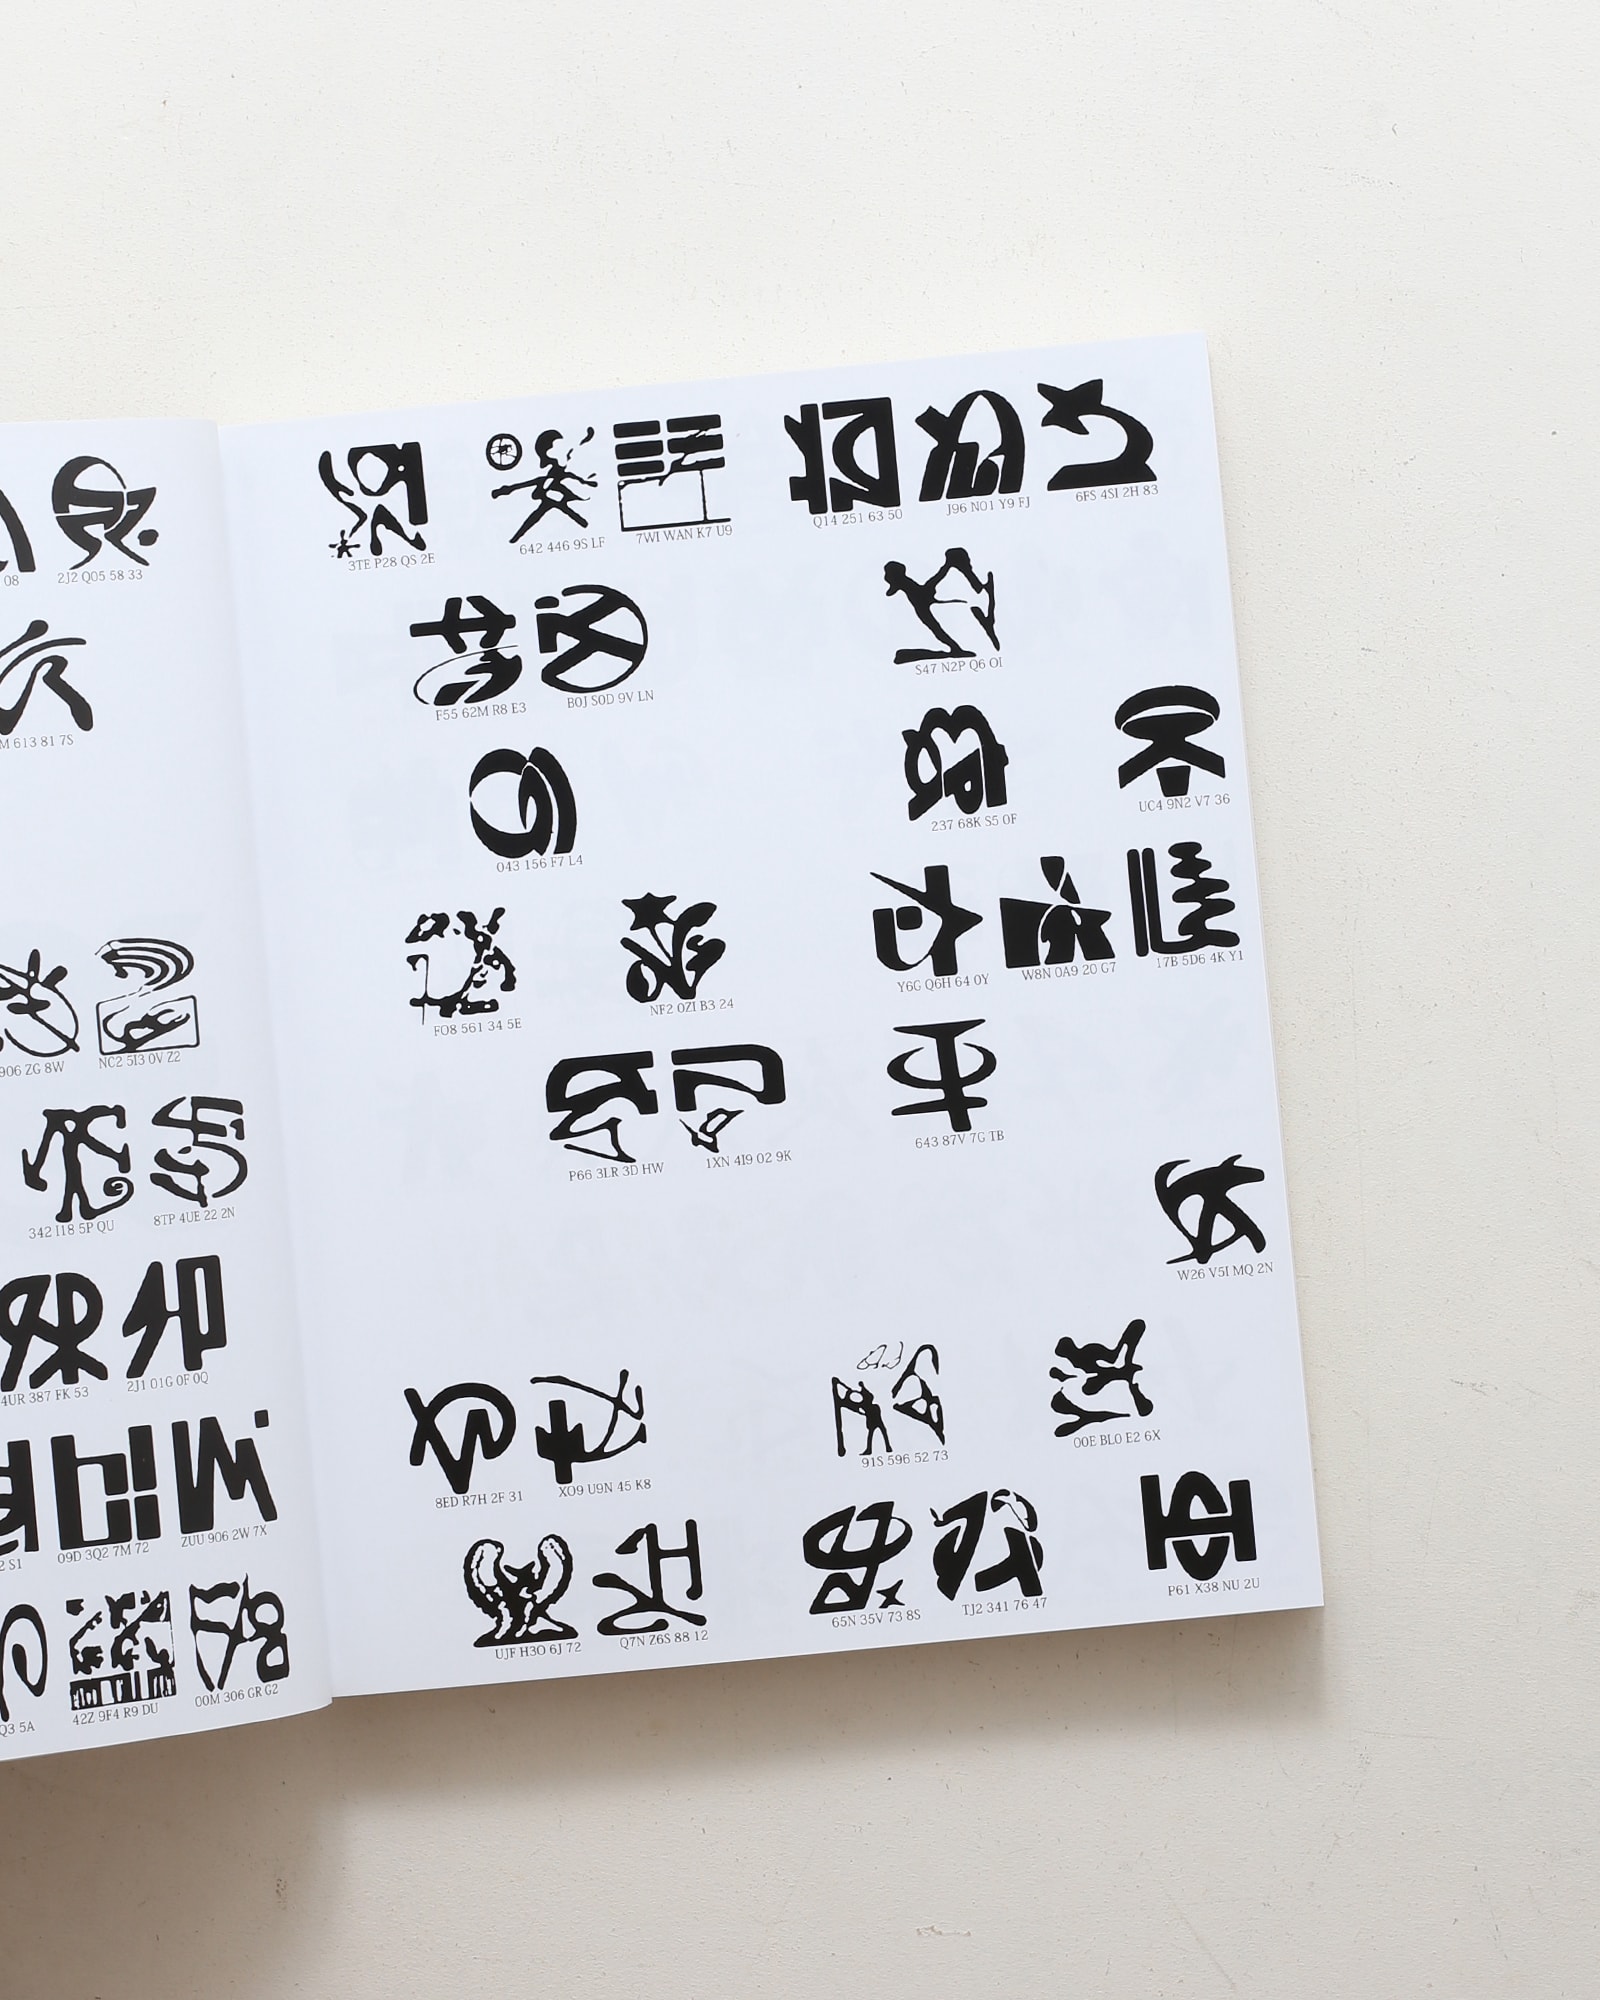 08
2J2 Q05 58 33
M 613 81 7S
906 ZG 8W
NC2 5I3 0V Z2
342 I18 5P QU
8TP 4UE 22 2N
4UR 387 FK 53
2J1 01G 0F 0Q
2 S1
09D 3Q2 7M 72
ZUU 906 2W 7X
Q3 5A
42Z 9F4 R9 DU
00M 306 GR G2
3TE P28 QS 2E
642 446 9S LF
7WI WAN K7 U9
Q14 251 63 50
J96 N01 Y9 FJ
6FS 4SI 2H 83
F55 62M R8 E3
B0J S0D 9V LN
S47 N2P Q6 OI
043 156 F7 L4
237 68K S5 0F
UC4 9N2 V7 36
FO8 561 34 5E
NF2 0ZI B3 24
Y6G Q6H 64 0Y
W8N 0A9 20 G7
17B 5D6 4K Y1
P66 3LR 3D HW
1XN 4I9 02 9K
643 87V 7G TB
W26 V5I MQ 2N
8ED R7H 2F 31
XO9 U9N 45 K8
91S 596 52 73
00E BL0 E2 6X
UJF H3O 6J 72
Q7N Z6S 88 12
65N 35V 73 8S
TJ2 341 76 47
P61 X38 NU 2U